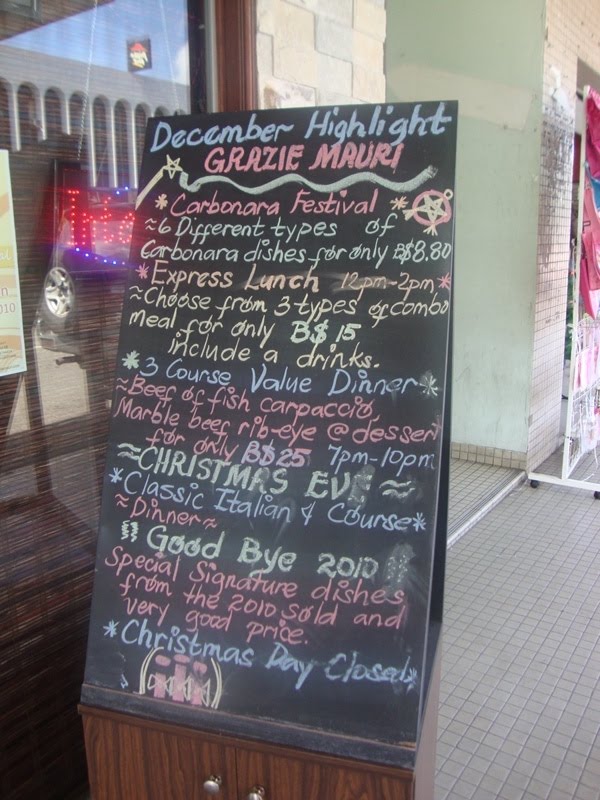 December Highlight
GRAZIE MAURI
* Carbonara Festival *
~6 Different types of
Carbonara dishes for only B$8.80
*Express Lunch 12pm-2pm*
~Choose from 3 types of combo
meal for only B$ 15
include a drinks.
*3 Course Value Dinner*
~Beef of fish carpaccio,
Marble beef rib-eye @ dessert
for only B$ 25 7pm-10pm
~CHRISTMAS EVE~
*Classic Italian 4 Course*
~Dinner~
Good Bye 2010
Special Signature dishes
from the 2010 sold and
very good price.
*Christmas Day Closed*
2010